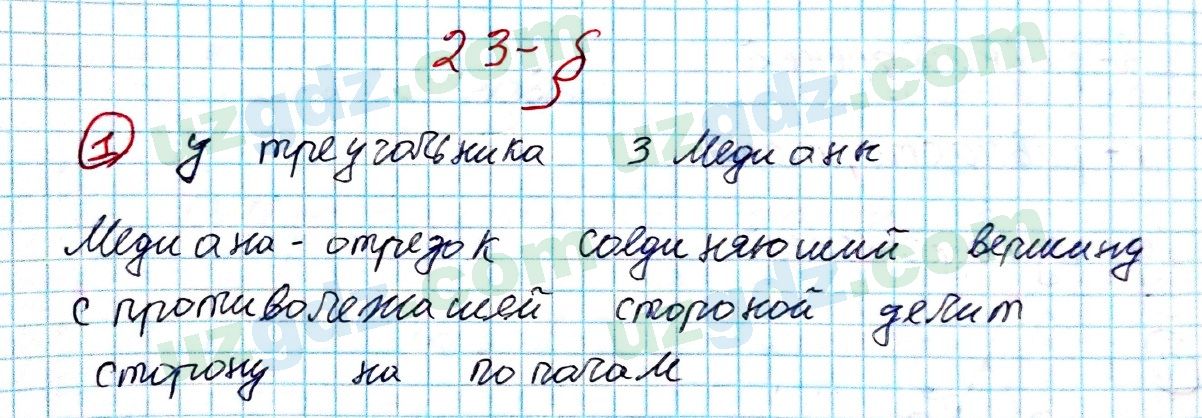 23-§
1 У треугольника 3 Медианы
Медиана - отрезок соединяюший вершину
с противолежашей стороной делит
сторону на пополам
uzgdz.com
uzgdz.com
uzgdz.com
uzgdz.com